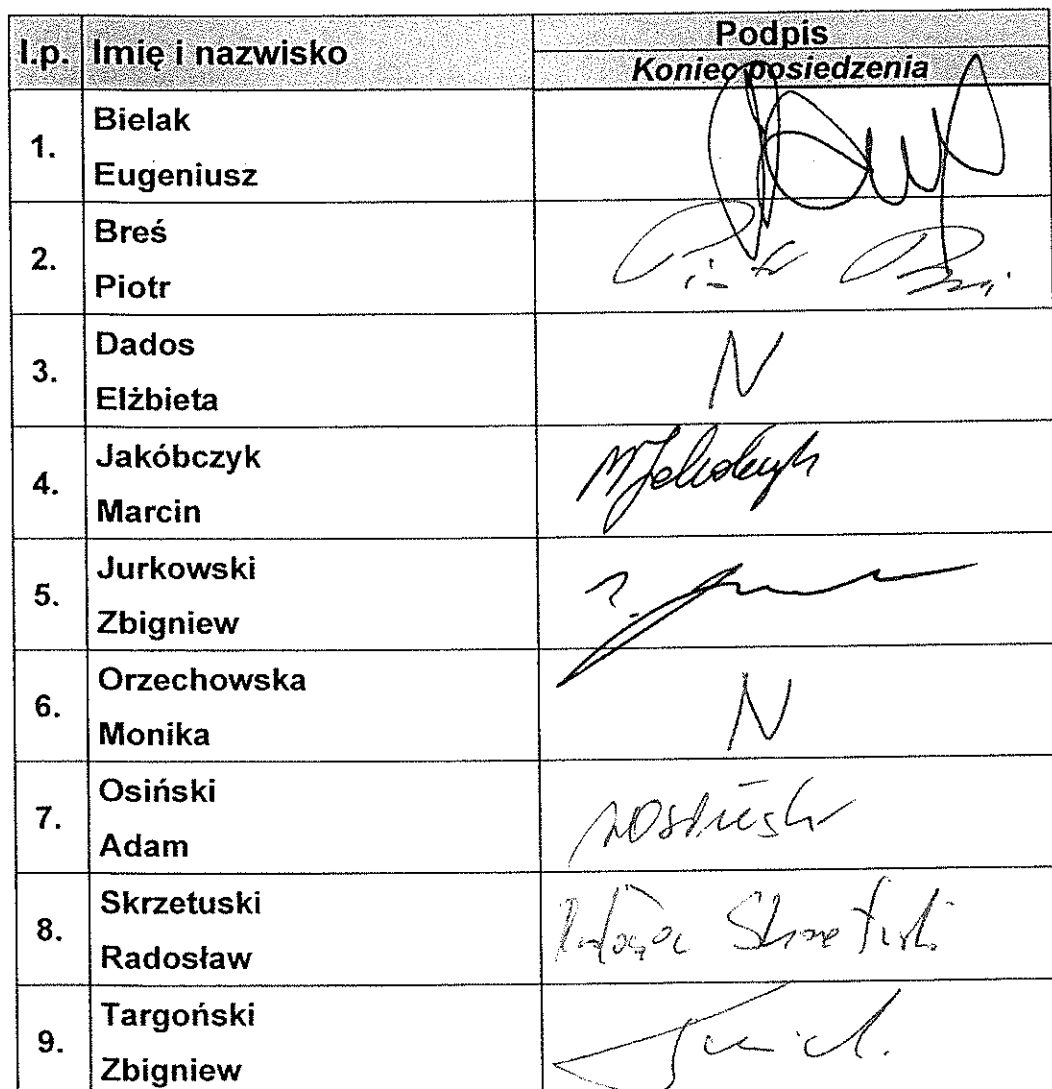 l.p. Imię i nazwisko Podpis
Koniec posiedzenia
1. Bielak
Eugeniusz
2. Breś
Piotr
3. Dados
Elżbieta
N
4. Jakóbczyk
Marcin
5. Jurkowski
Zbigniew
6. Orzechowska
Monika
N
7. Osiński
Adam
8. Skrzetuski
Radosław
9. Targoński
Zbigniew